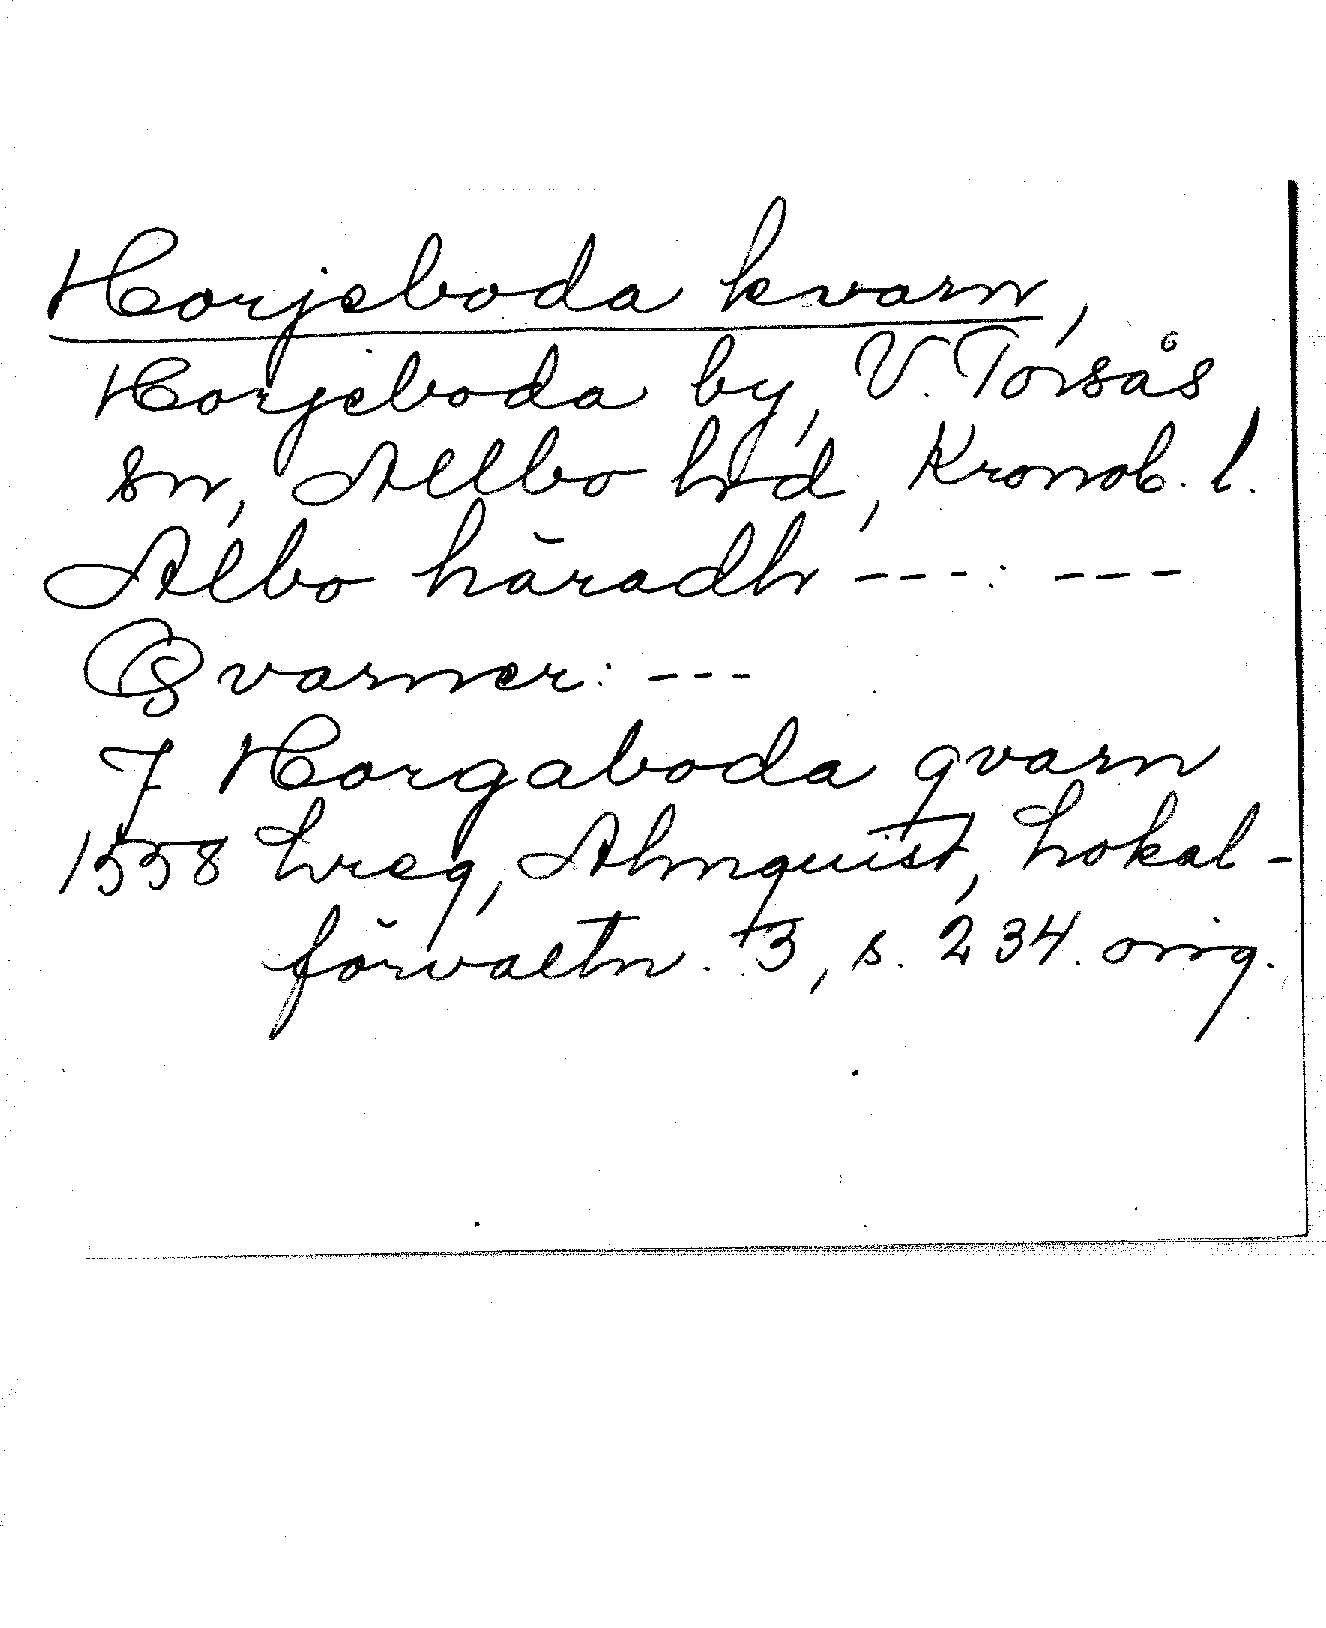 Horjeboda kvarn,
Horjeboda by, V. Torsås
sn, Allbo hd, Kronob. l.
Albo häradh ---: ---
Qvarner: ---
J Horgaboda qvarn
1558 Lreg, Almquist, Lokal-
förvaltn. 3, s. 234. orig.